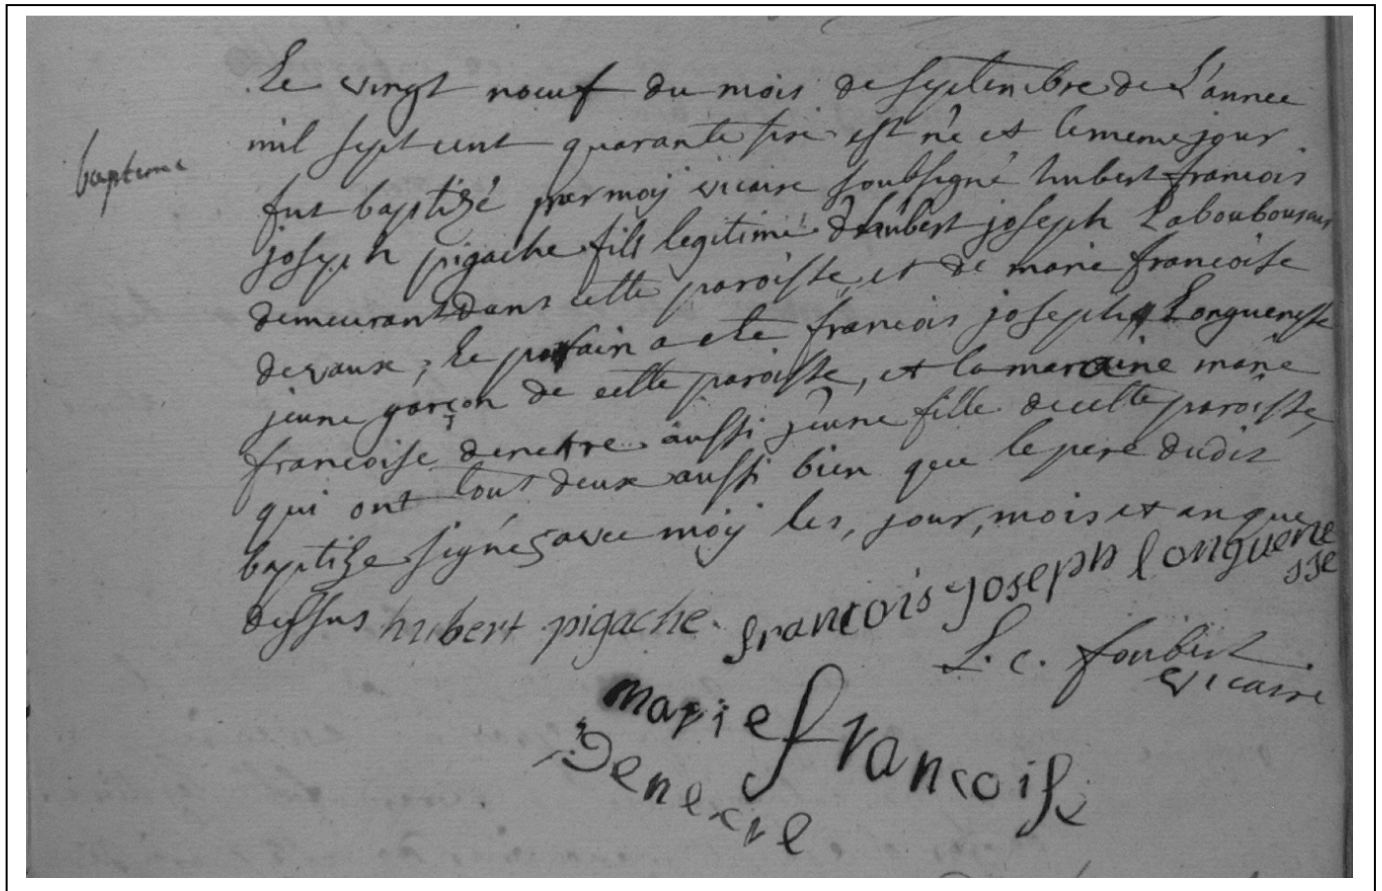 bapteme
Le vingt noeuf du mois de septembre de L'année
mil sept cent quarante six est né et le meme jour
fut baptizé par moÿ vicaire soubsigné hubert francois
joseph pigache fils legitime d'hubert joseph Laboubour
demeurant dans cette paroisse, et de marie francoise
devaux; le parain a eté francois joseph Longuenesse
jeune garçon de cette paroisse, et la maraine marie
francoise aussi jeune fille de cette paroisse,
qui ont tout deux aussi bien que le pere dudit
baptize signés avec moÿ les, jour, mois et an que
dessus hubert pigache. francois joseph longuene
sse
L. c. foubert
vicaire
marie francoise